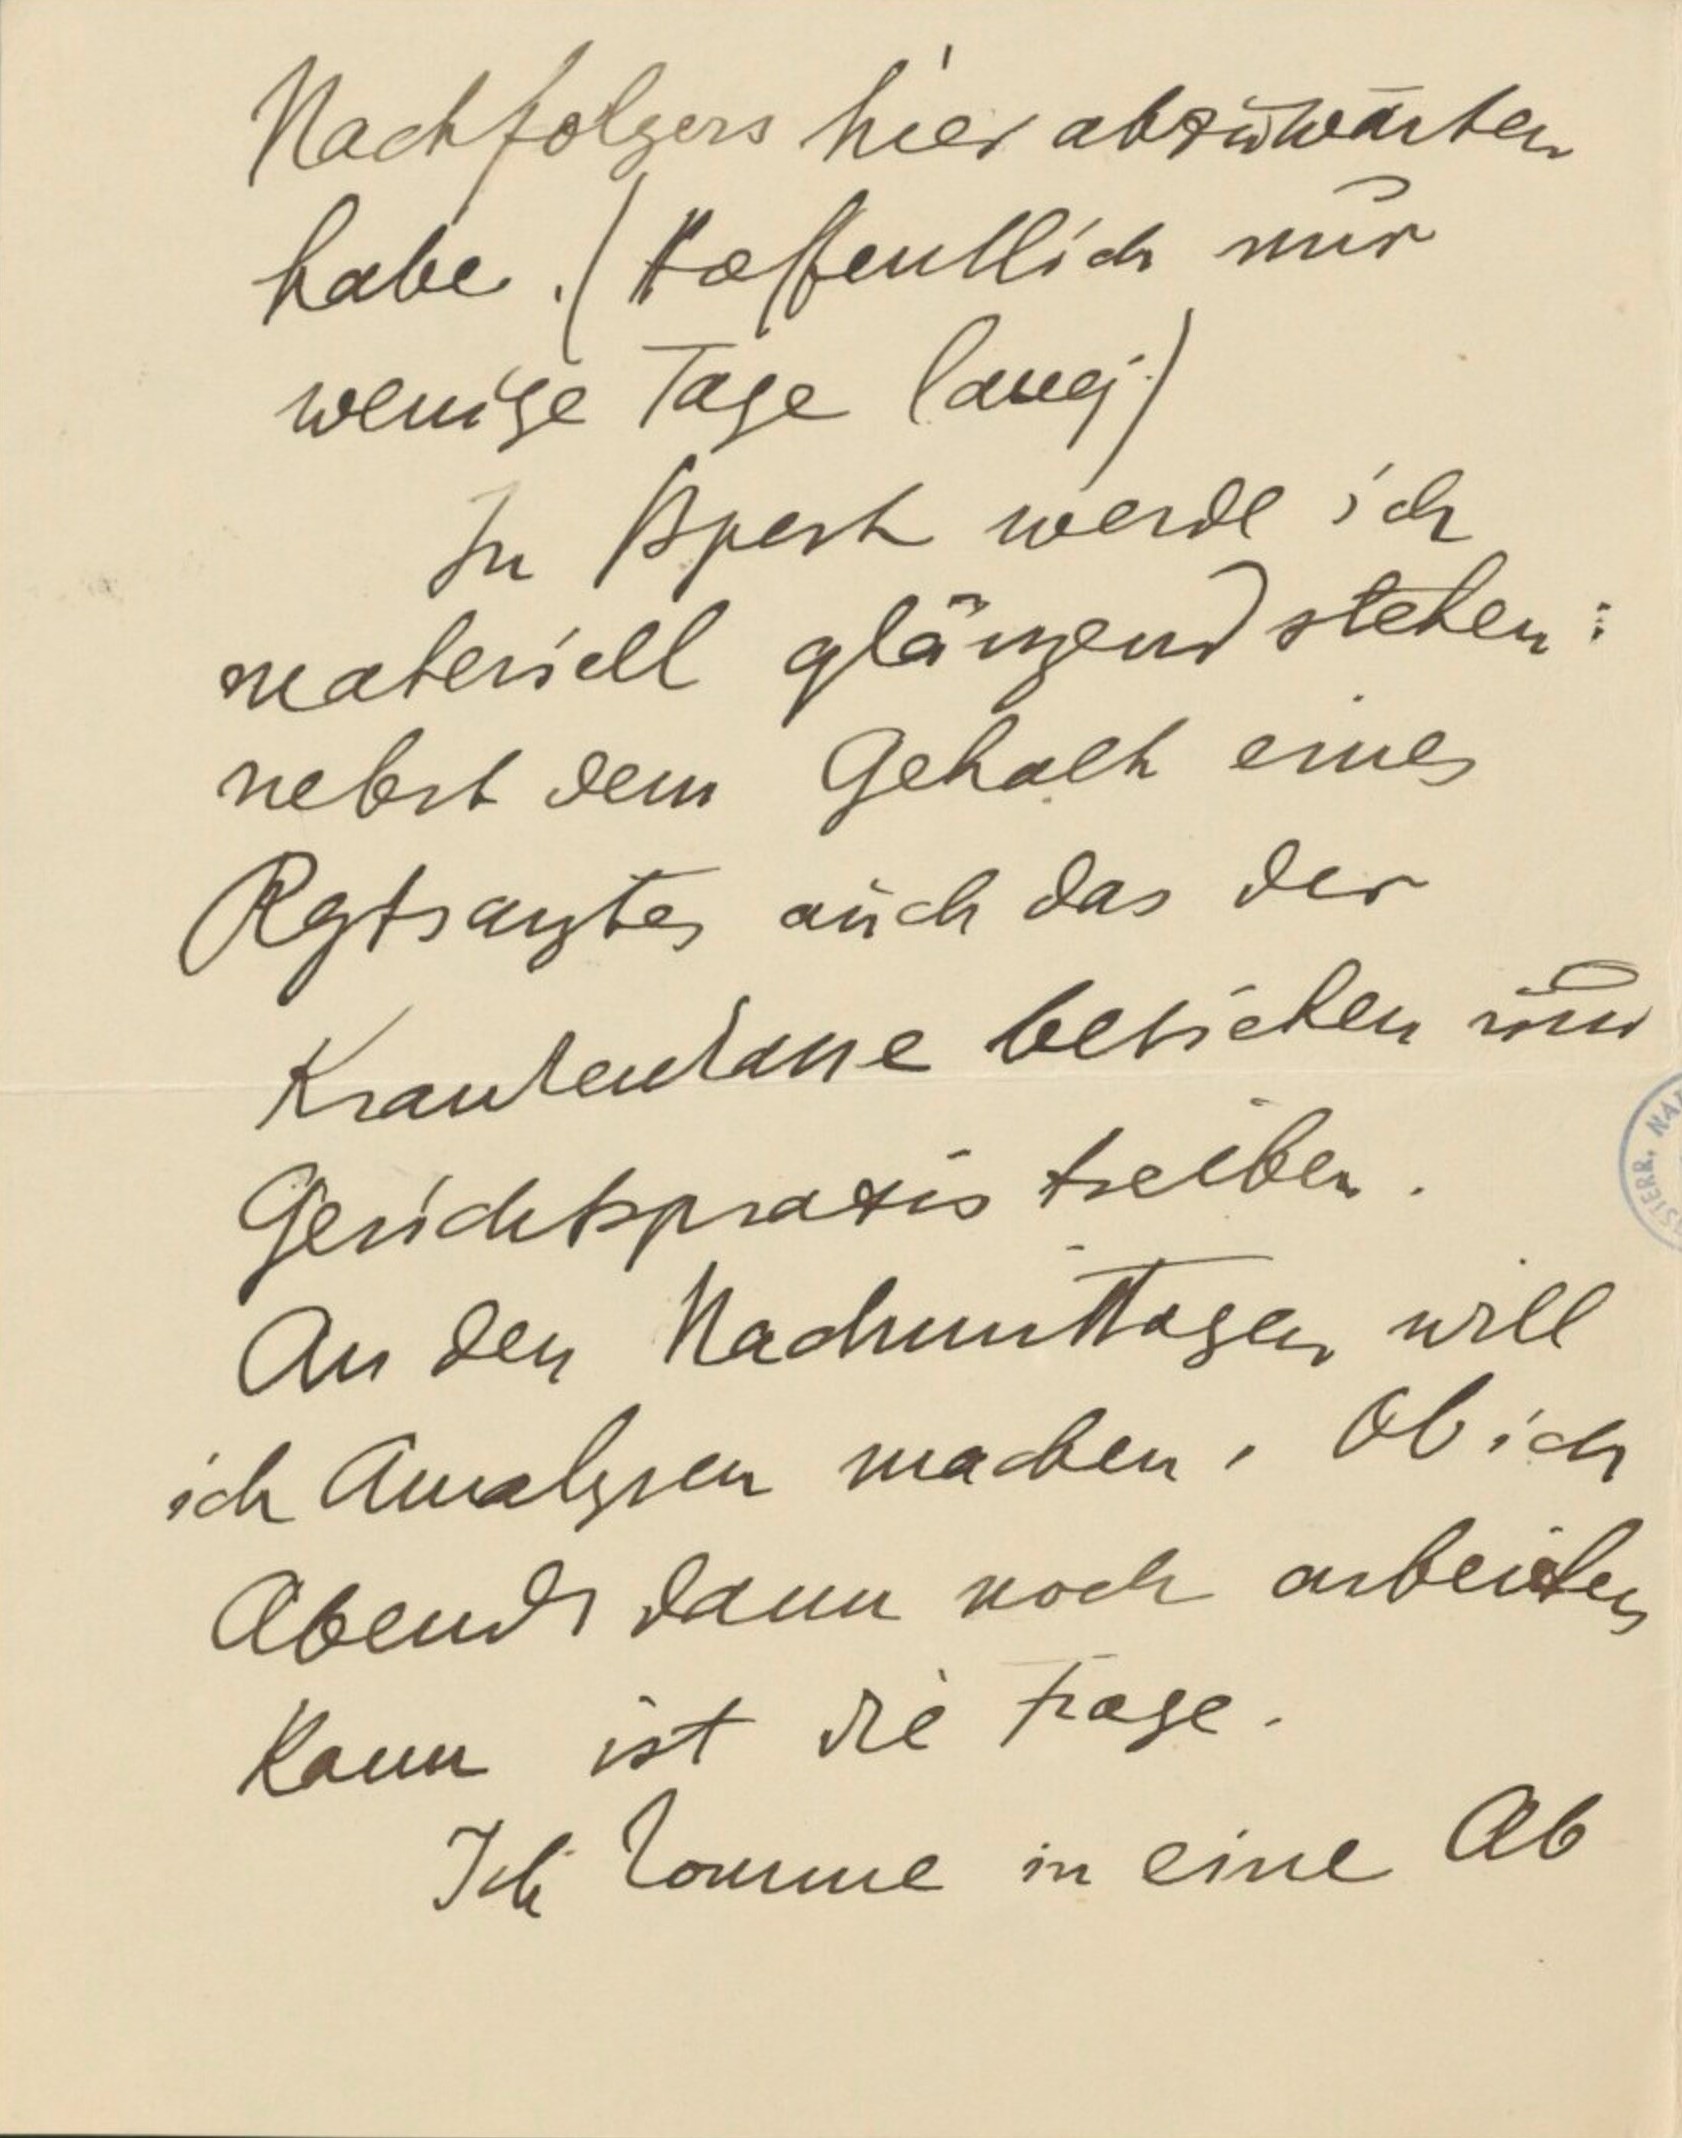 Nachfolgers hier abzuwarten
habe. (Hoffentlich nur
wenige Tage lang.)
In Bpest werde ich
materiell glänzend stehen:
nebst dem Gehalt eines
Rgtsarztes auch das der
Krankenkasse beziehen und
Gerichtspraxis treiben.
An den Nachmittagen will
ich Analysen machen. Ob ich
Abends dann noch arbeiten
kann ist die Frage.
Ich komme in eine Ab